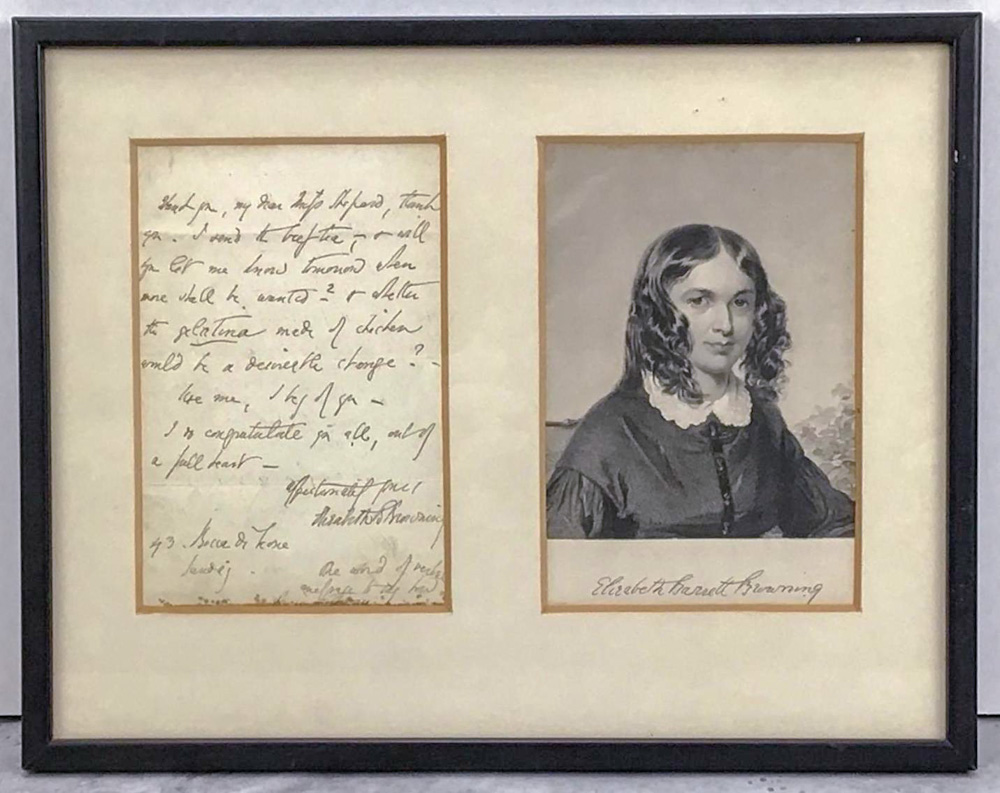 Thank you, my dear Miss Shepard, thank
you. I send the beeftea, - & will
you let me know tomorrow when
more shall be wanted? & whether
the gelatina made of chicken
would be a desirable change? -
Use me, I beg of you -
I so congratulate you all, out of
a full heart -
Affectionately yours
Elizabeth B Browning
43. Bocca di Leone
Sunday.
One word of verbal
message to say how
Elizabeth Barrett Browning